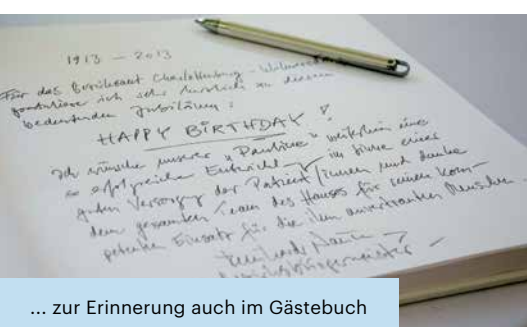 1913 – 2013
Für das Bezirksamt Charlottenburg – Wilmersdorf
gratuliere ich sehr herzlich zu diesem
bedeutenden Jubiläum:
HAPPY BIRTHDAY!
Ich wünsche unserer „Pauline" weiterhin eine
so erfolgreiche im Sinne einer
guten Versorgung der Patient/innen und danke
dem gesamten Team des Hauses für seinen kom-
petenten Einsatz für die ihm anvertrauten Menschen.
Bezirksbürgermeister
... zur Erinnerung auch im Gästebuch